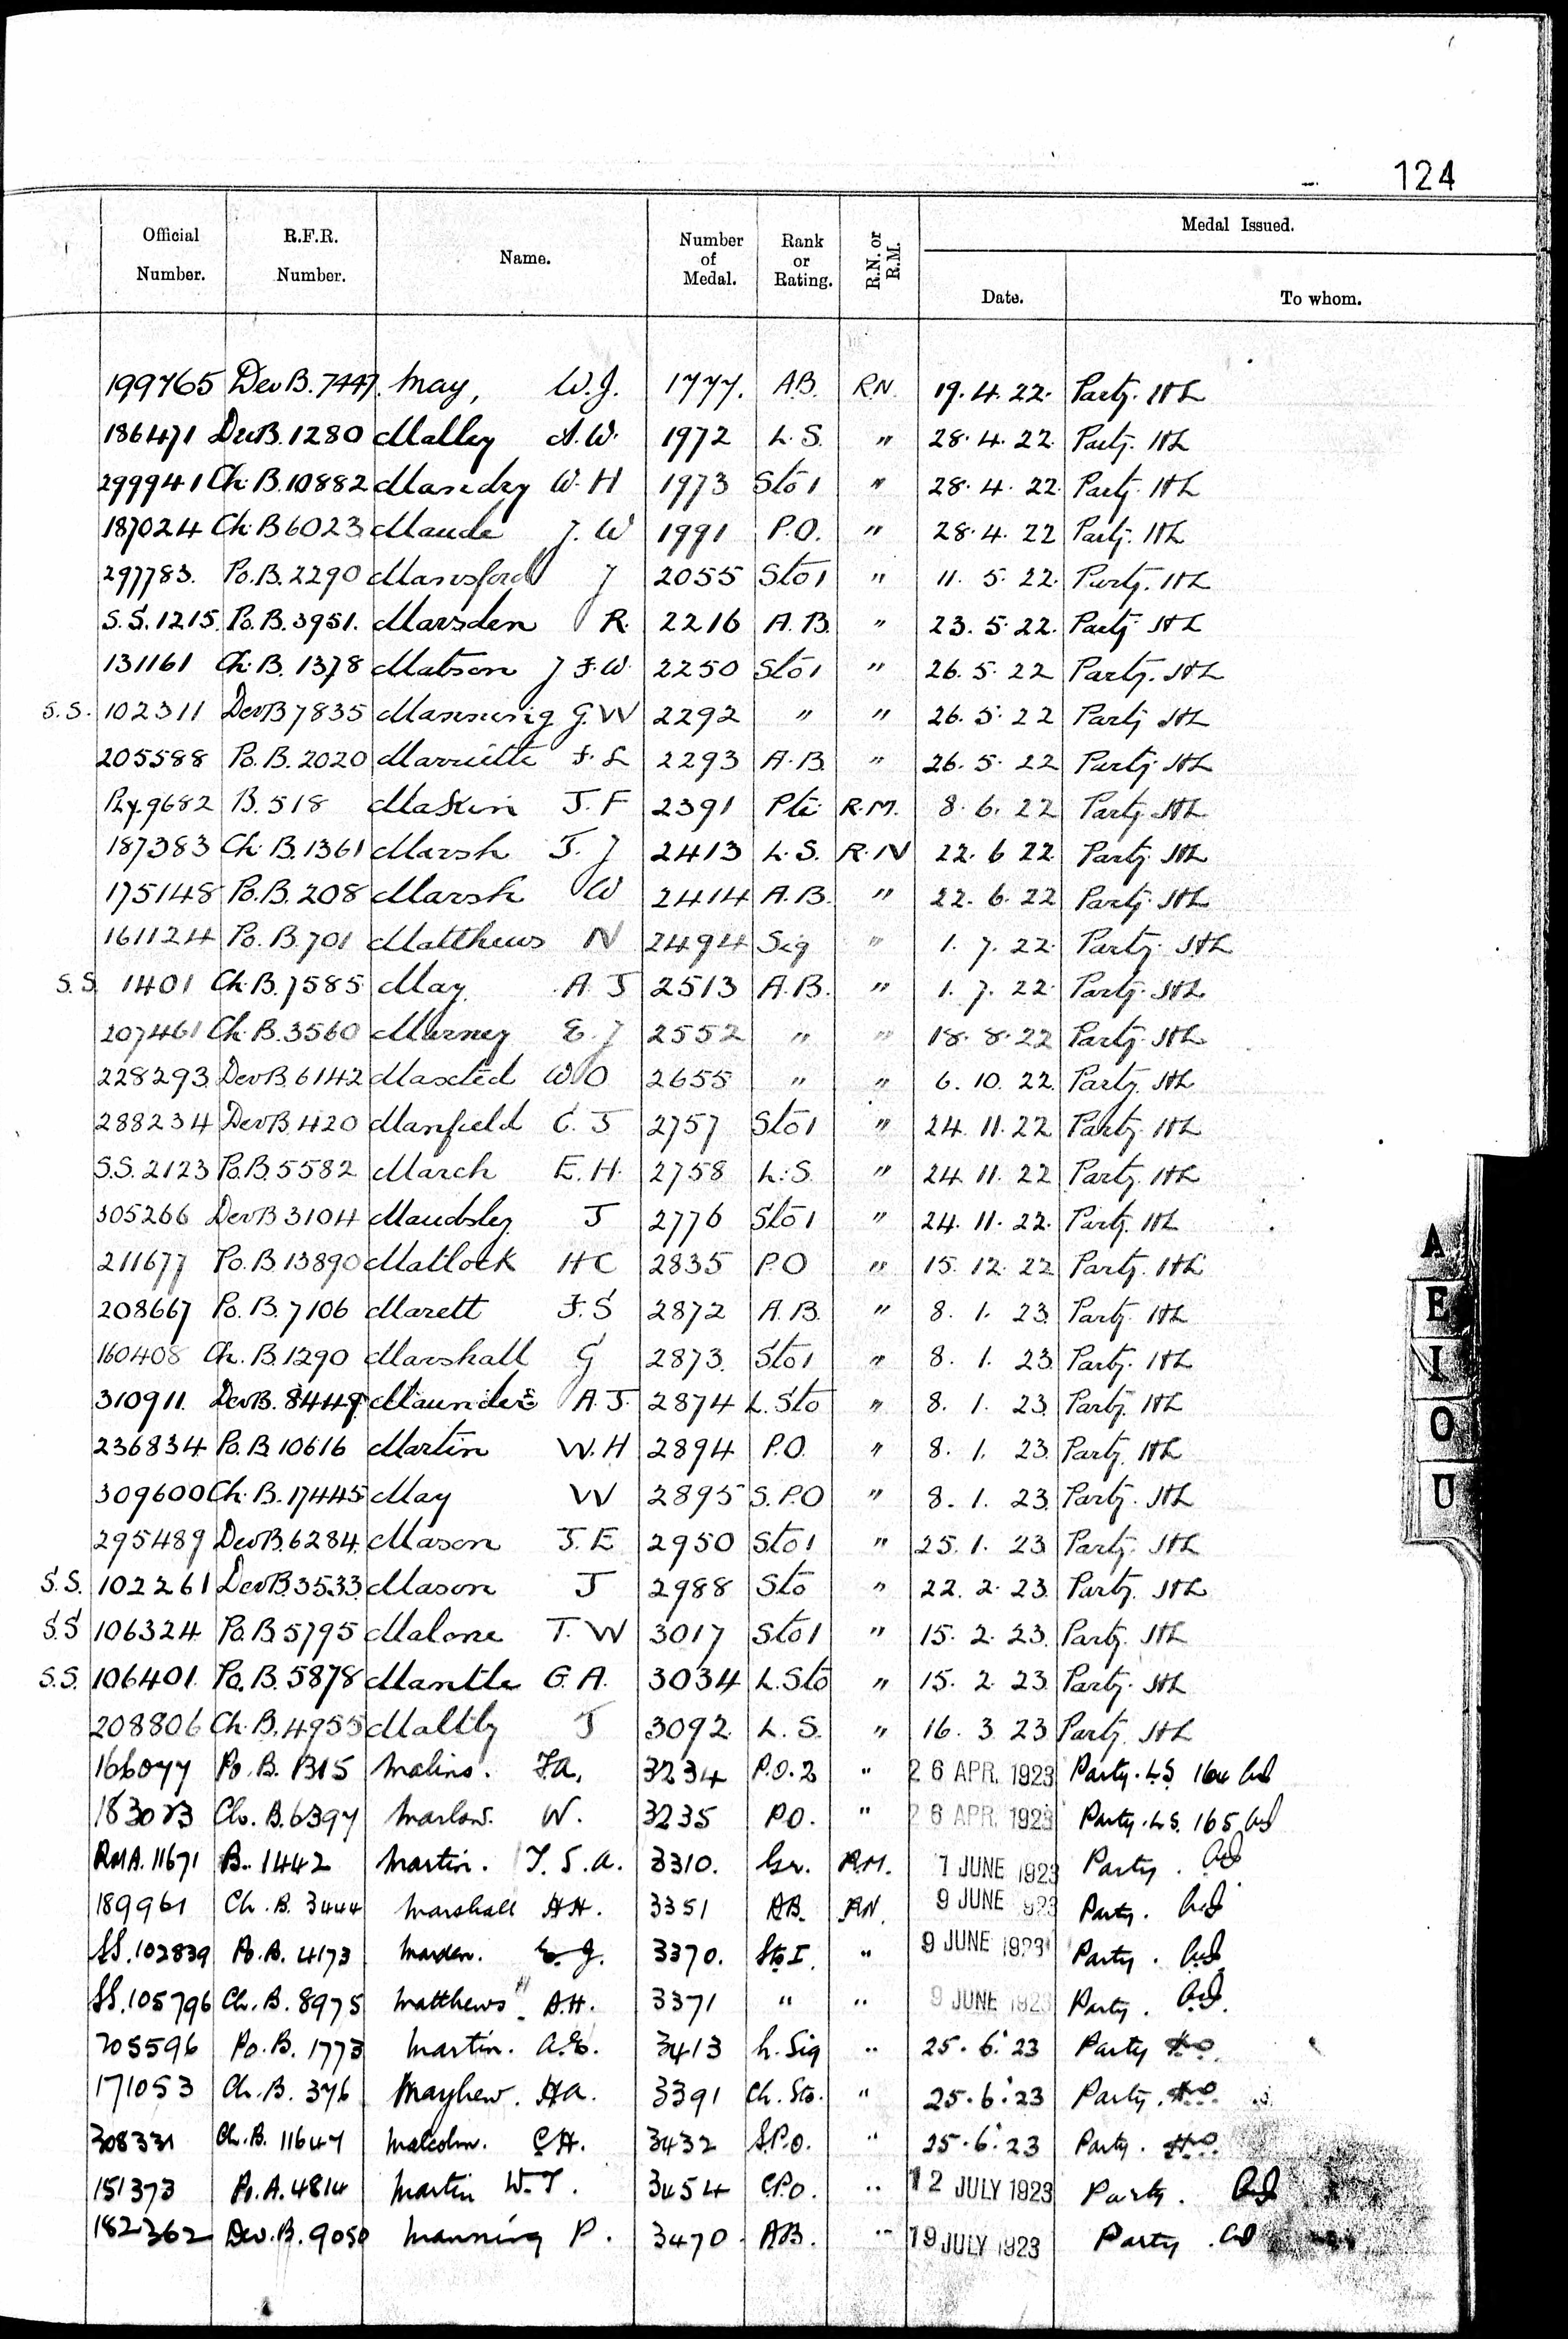 124
Official Number. R.F.R. Number. Name. Number of Medal. Rank or Rating. R.N. or R.M. Medal Issued. Date. To whom.
199765 Dev B. 7447. May, W.J. 1777. A.B. R.N. 19.4.22. Party.
186471 Dev B. 1280 Malley A.W. 1972 L.S. " 28.4.22. Party.
299941 Ch. B. 10882 Mandry W.H 1973 Sto 1 " 28.4.22. Party.
187024 Ch B 6023 Maude J.W 1991 P.O. " 28.4.22 Party.
297783. Po. B. 2290 Mansford J 2055 Sto 1 " 11.5.22. Party.
S.S. 1215. Po. B. 3951. Marsden R. 2216 A.B. " 23.5.22. Party
131161 Ch. B. 1378 Matson J F.W. 2250 Sto 1 " 26.5.22 Party.
S.S. 102311 Dev B 7835 Manning G.W 2292 " " 26.5.22 Party
205588 Po. B. 2020 Marriette F.L 2293 A.B. " 26.5.22 Party
Ply. 9682 B. 518 Maskin J.F 2391 Pte R.M. 8.6.22 Party
187383 Ch. B. 1361 Marsh T.J 2413 L.S. R.N 22.6 22. Party
175148 Po. B. 208 Marsh W 2414 A.B. " 22.6.22 Party
161124 Po. B. 701 Matthews N 2494 Sig " 1.7.22. Party.
S.S. 1401 Ch. B. 7585 May A.J 2513 A.B. " 1.7.22. Party.
207461 Ch. B. 3560 Marney E.J 2552 " " 18.8.22 Party.
228293 Dev B. 6142 Maxted W O 2655 " " 6.10.22. Party.
288234 Dev B. 420 Manfield C.J 2757 Sto 1 " 24.11.22 Party.
S.S. 2123 Po. B. 5582 March E.H. 2758 L.S. " 24.11.22 Party.
305266 Dev B 3104 Maudsley J 2776 Sto 1 " 24.11.22. Party.
211677 Po. B. 13890 Matlock H C 2835 P.O " 15.12.22 Party.
208667 Po. B. 7106 Marett F.S 2872 A.B. " 8.1.23. Party.
160408 Ch. B. 1290 Marshall G 2873. Sto 1 " 8.1.23 Party.
310911. Dev B. 8449 Maunders A.J. 2874 L. Sto " 8.1.23. Party.
236834 Po. B. 10616 Martin W.H 2894 P.O. " 8.1.23. Party.
309600 Ch. B. 17445 May W 2895 S.P.O " 8.1.23. Party.
295489 Dev B. 6284. Mason J.E 2950 Sto 1 " 25.1.23. Party.
S.S. 102261 Dev B. 3533. Mason J 2988 Sto " 22.2.23. Party.
S.S 106324 Po. B. 5795 Malone T.W 3017 Sto 1 " 15.2.23. Party.
S.S. 106401. Po. B. 5878 Mantle G.A. 3034 L. Sto " 15.2.23. Party.
208806 Ch. B. 4955 Maltby J 3092. L.S. " 16.3.23 Party.
166077 Po. B. 1315 Malins. F.A. 3234 P.O.2 " 26 APR. 1923 Party. L.S. 164
Ch. B. 6397 Marlow. W. 3235 P.O. " 26 APR. 1923 Party. L.S. 165
RMA. 11671 B. 1442 Martin. T.S.A. 3310. Gr. R.M. 7 JUNE 1923 Party.
189961 Ch. B. 3444 Marshall H.H. 3351 A.B. R.N. 9 JUNE 1923 Party.
SS. 102839 Po. B. 4173 Marden. E.J. 3370. Sto I. " 9 JUNE 1923 Party.
SS. 105796 Ch. B. 8975 Matthews A.H. 3371 " " 9 JUNE 1923 Party.
205596 Po. B. 1773 Martin. A.E. 3413 L. Sig " 25.6.23 Party
171053 Ch. B. 376 Mayhew. H.A. 3391 Ch. Sto. " 25.6.23 Party.
308331 Ch. B. 11647 Malcolm. C.H. 3432 S.P.O. " 25.6.23 Party.
151373 Po. A. 4814 Martin W.T. 3454 C.P.O. " 12 JULY 1923 Party.
182362 Dev. B. 9050 Manning P. 3470. A.B. " 19 JULY 1923 Party
A
E
I
O
U